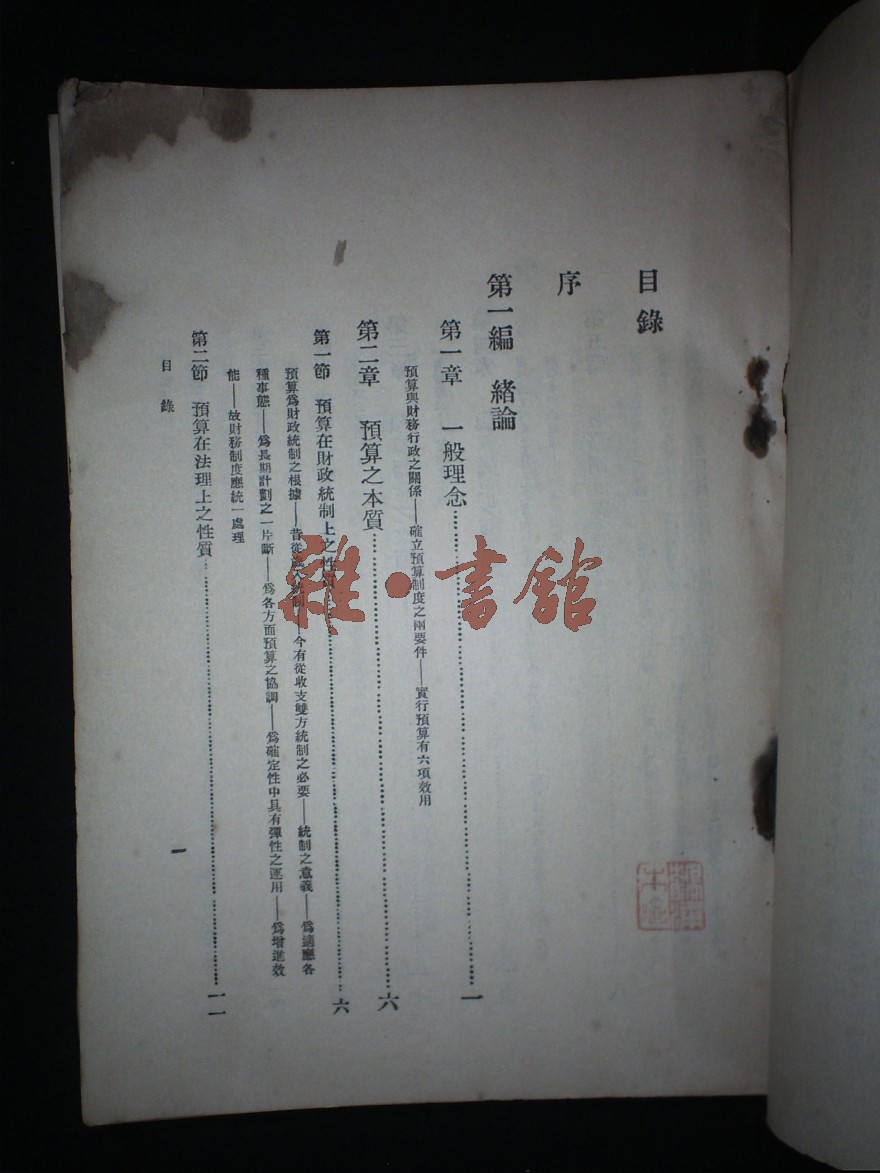 目錄
序
第一編 緒論
第一章 一般理念……一
預算與財務行政之關係——確立預算制度之兩要件——實行預算有六項效用
第二章 預算之本質……六
第一節 預算在財政統制上之性……六
預算爲財政統制之根據——昔從 今有從收支雙方統制之必要——統制之意義——爲適應各
種事態——爲長期計劃之一片斷——爲各方面預算之協調——爲確定性中具有彈性之運用——爲增進效
能——故財務制度應統一處理
第二節 預算在法理上之性質……一一
目錄
一
雜·書館